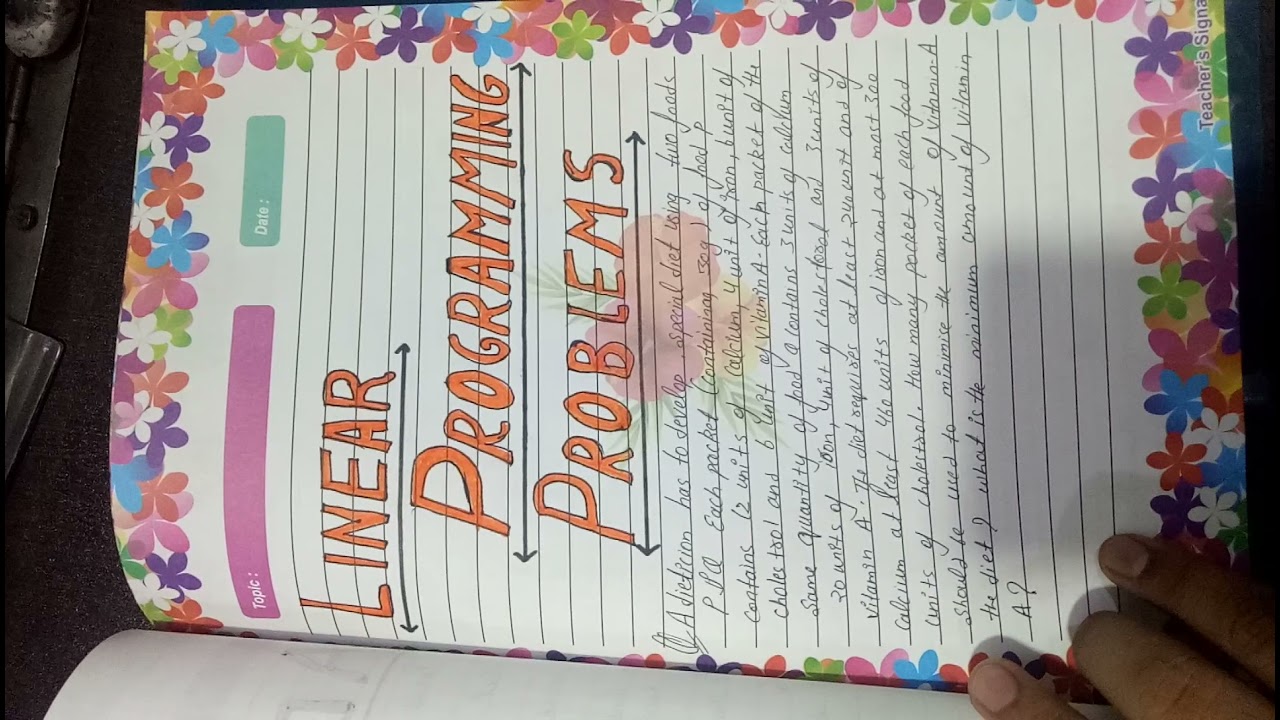 Topic :
Date :
LINEAR
PROGRAMMING
PROBLEMS
Q) A dietian has to develop special diet using two foods
P & Q Each packet (containing 30g) of food P
contains 12 units of calcium, 4 unit of Iron, 6 unit of
cholestrol and 6 unit of vitamin A. Each packet of the
Same quantity of food Q contains 3 units of calcium
20 units of iron, 4 unit of cholesterol and 3 units of
vitamin A. The diet requires at least 240 unit and of
calcium at least 460 units of iron and at most 300
units of cholestrol. How many packet of each food
should be used to minimise the amount of vitamin-A
the diet? what is the minimum amount of vitamin
A?
Teacher's Signa